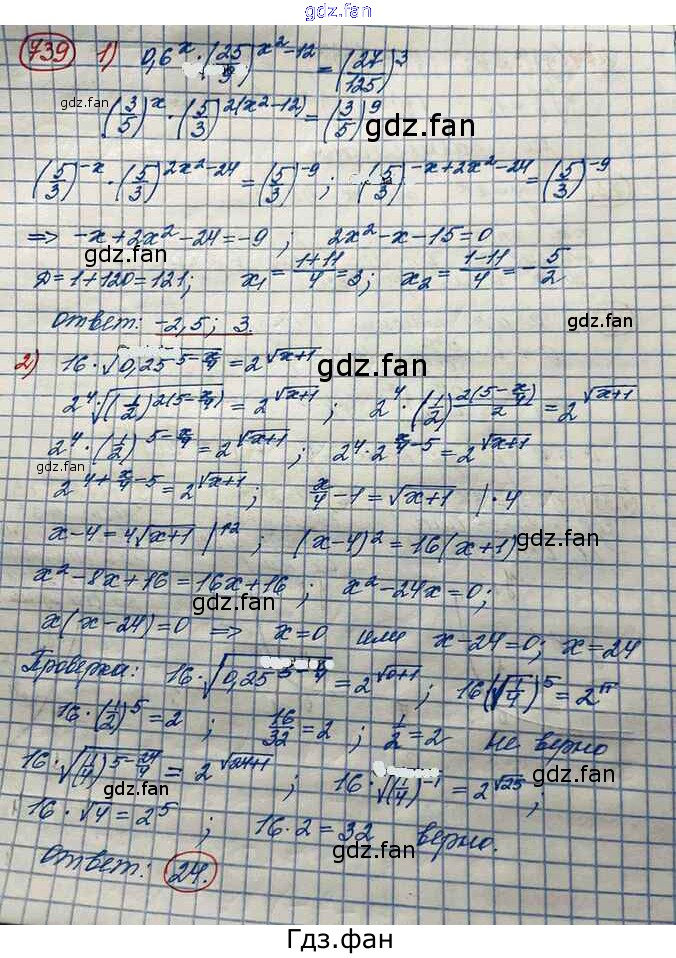 gdz.fan
739 1) 0,6^x · (25/9)^(x²-12) = (27/125)^3
gdz.fan
(3/5)^x · (5/3)^(2(x²-12)) = (3/5)^9
gdz.fan
(5/3)^(-x) · (5/3)^(2x²-24) = (5/3)^(-9) ; (5/3)^(-x+2x²-24) = (5/3)^(-9)
=> -x+2x²-24=-9 ; 2x²-x-15=0
gdz.fan
Д=1+120=121; x₁ = (1+11)/4 = 3; x₂ = (1-11)/4 = -5/2
gdz.fan
ответ: -2,5; 3.
2) 16·√(0,25^(5-x/4)) = 2^√(x+1)
gdz.fan
2^4·√((1/2)^(2(5-x/4))) = 2^√(x+1) ; 2^4·(1/2)^(2(5-x/4)/2) = 2^√(x+1)
2^4·(1/2)^(5-x/4) = 2^√(x+1) ; 2^4·2^(x/4-5) = 2^√(x+1)
gdz.fan
2^(4+x/4-5) = 2^√(x+1) ; x/4-1=√(x+1) |·4
x-4=4√(x+1) |↑2 ; (x-4)²=16(x+1)
gdz.fan
x²-8x+16=16x+16 ; x²-24x=0;
gdz.fan
x(x-24)=0 => x=0 или x-24=0; x=24
Проверка: 16·√(0,25^(5-0/4)) = 2^√(0+1) ; 16(√(1/4))^5=2^√1
gdz.fan
16·(1/2)^5=2 ; 16/32=2 ; 1/2=2 не верно
16·√((1/4)^(5-24/4)) = 2^√(24+1) ; 16·√((1/4)^(-1)) = 2^√25 ;
gdz.fan
gdz.fan
16·√4=2^5 ; 16·2=32 верно.
gdz.fan
ответ: 24.
gdz.fan
Гдз.фан